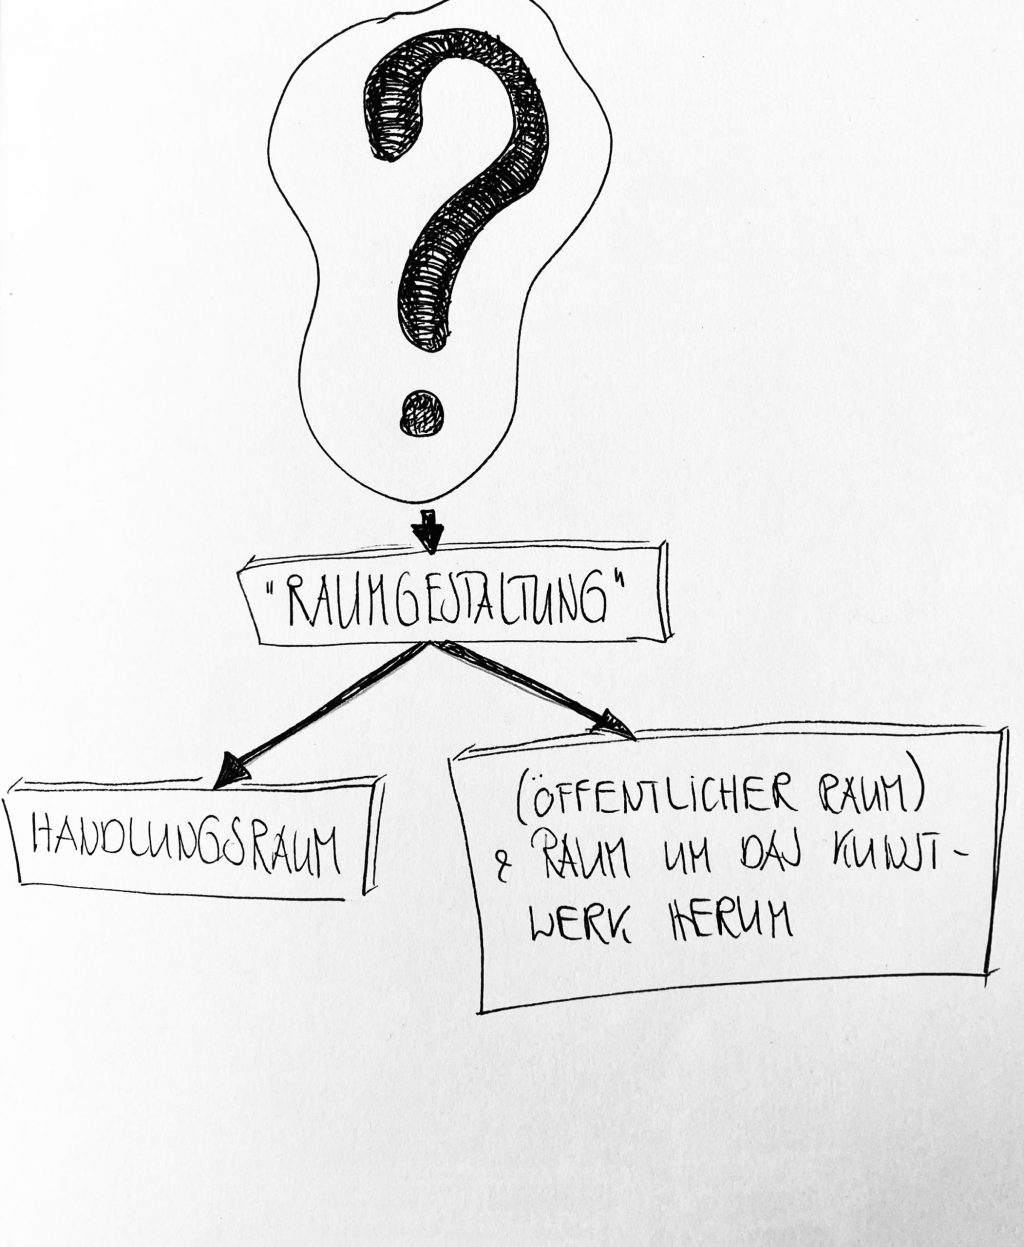 ?
"RAUMGESTALTUNG"
HANDLUNGSRAUM
(ÖFFENTLICHER RAUM)
& RAUM UM DAS KUNST-
WERK HERUM